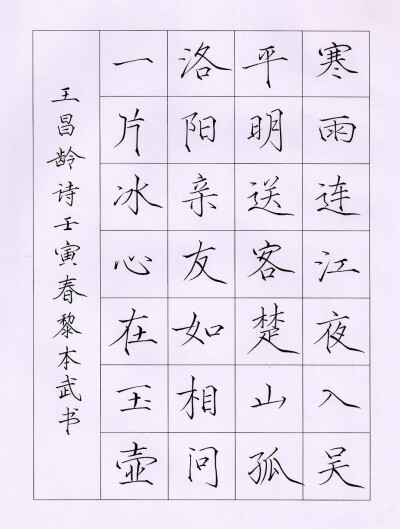 寒雨连江夜入吴
平明送客楚山孤
洛阳亲友如相问
一片冰心在玉壶
王昌龄诗壬寅春黎本武书